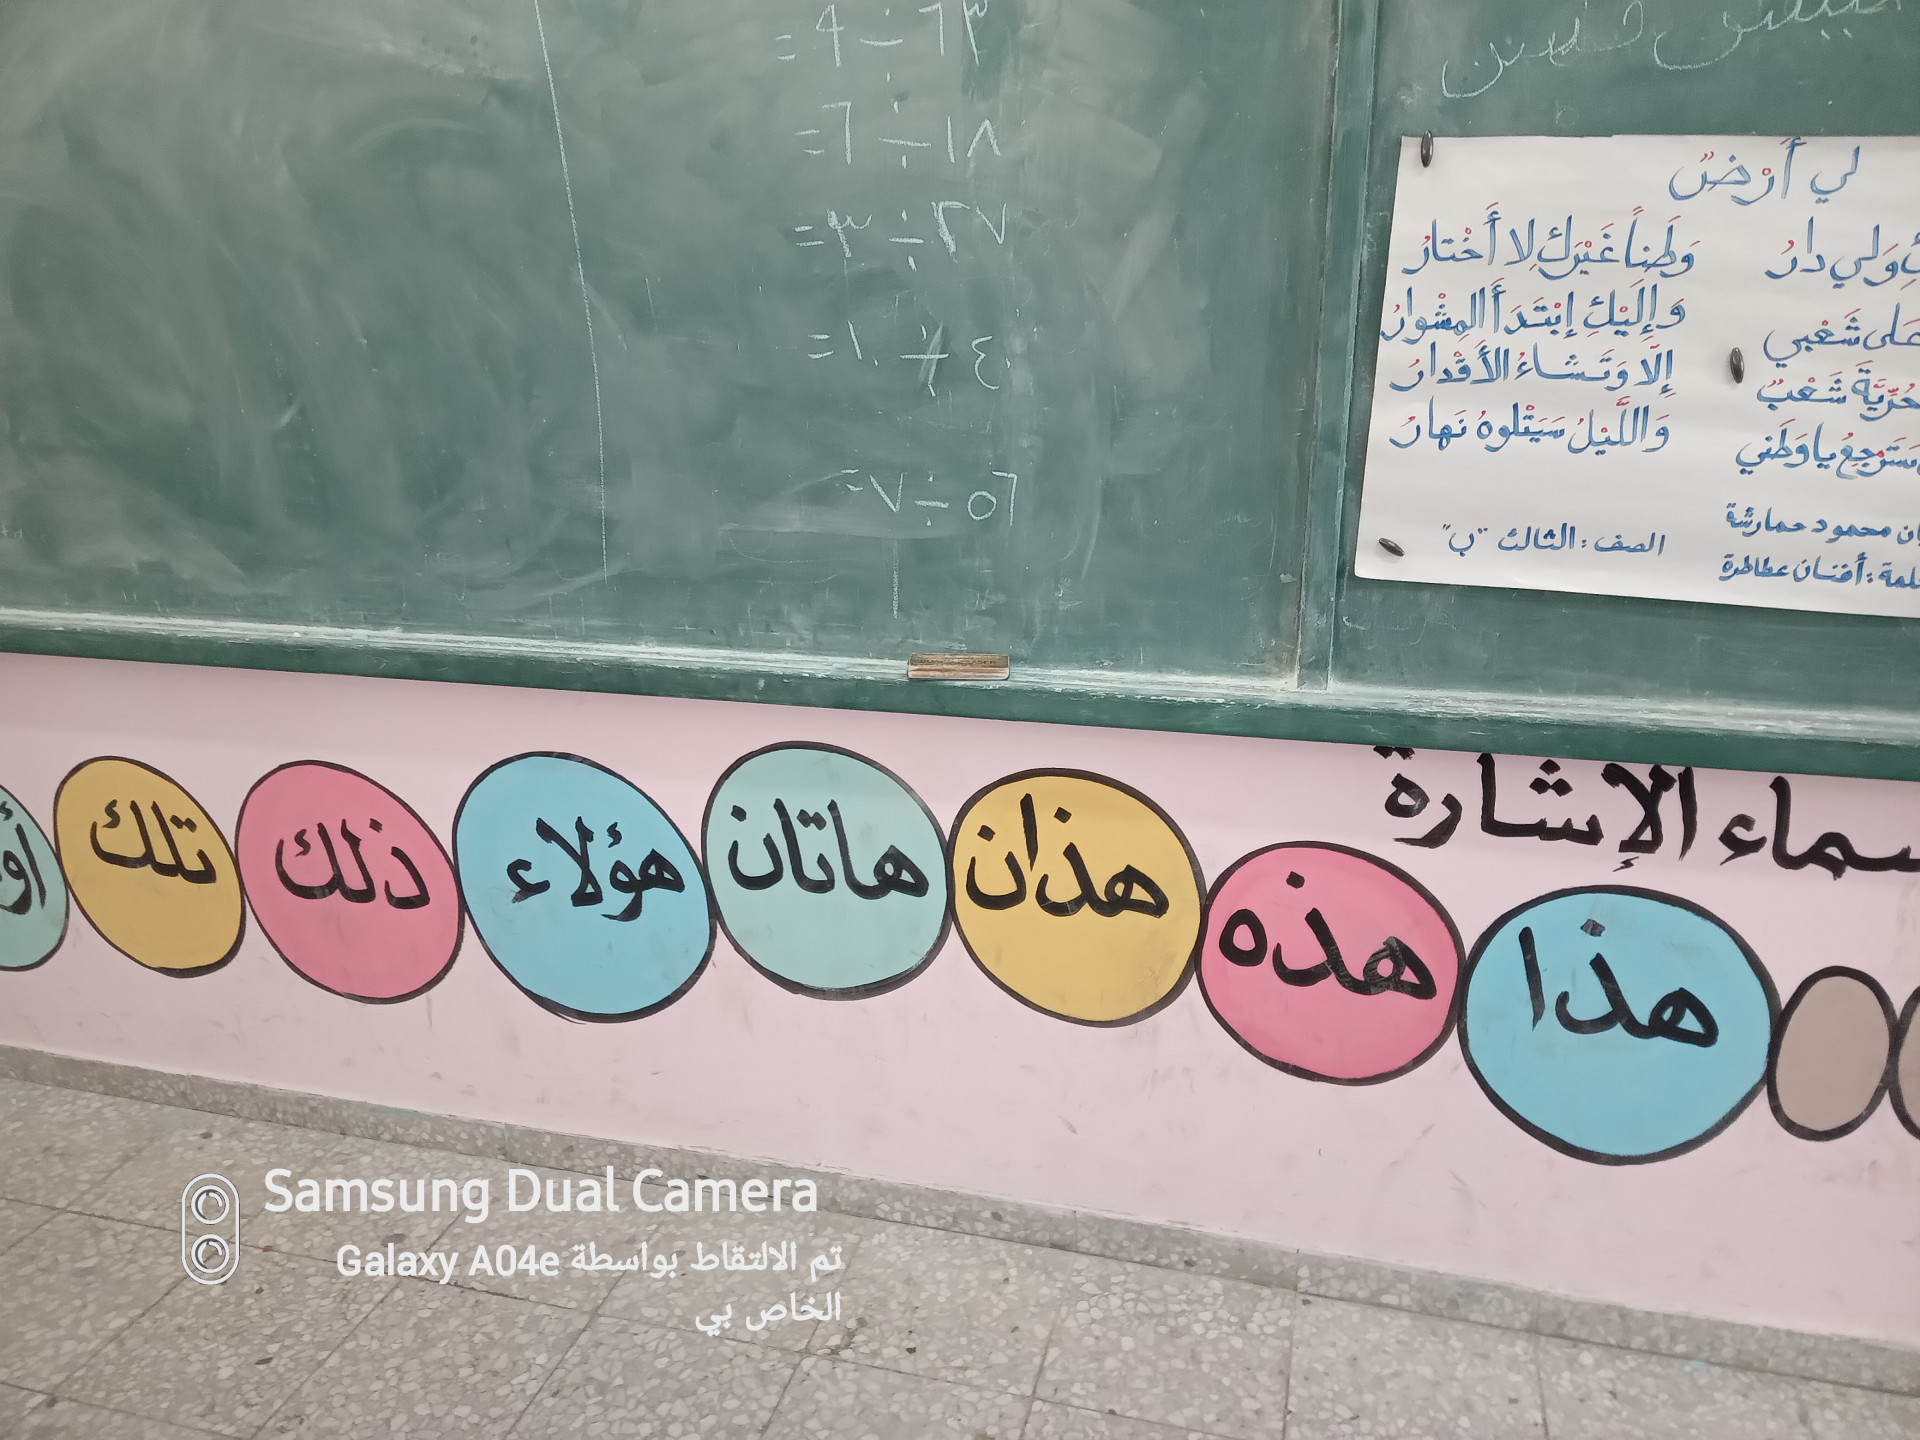 ٦٣ ÷ ٩ =
١٨ ÷ ٦ =
٢٧ ÷ ٣ =
٤٠ ÷ ١٠ =
٥٦ ÷ ٧ =
لي أَرْضٌ
وَلي دارُ وَطَناً غَيْرَكِ لا أَخْتارُ
شَعْبي وَإِلَيْكِ إِبْتَدَأَ المِشْوارُ
حُرِّيَّةَ شَعْبٌ إِلّا وَتَشاءُ الأَقْدارُ
يا وَطَني وَاللَّيْلُ سَيَتْلوهُ نَهارُ
محمود حمارشة
الصف : الثالث "ب"
أفنان عطاطرة
الإشارة
هذا
هذه
هذان
هاتان
هؤلاء
ذلك
تلك
Samsung Dual Camera
تم الالتقاط بواسطة Galaxy A04e
الخاص بي